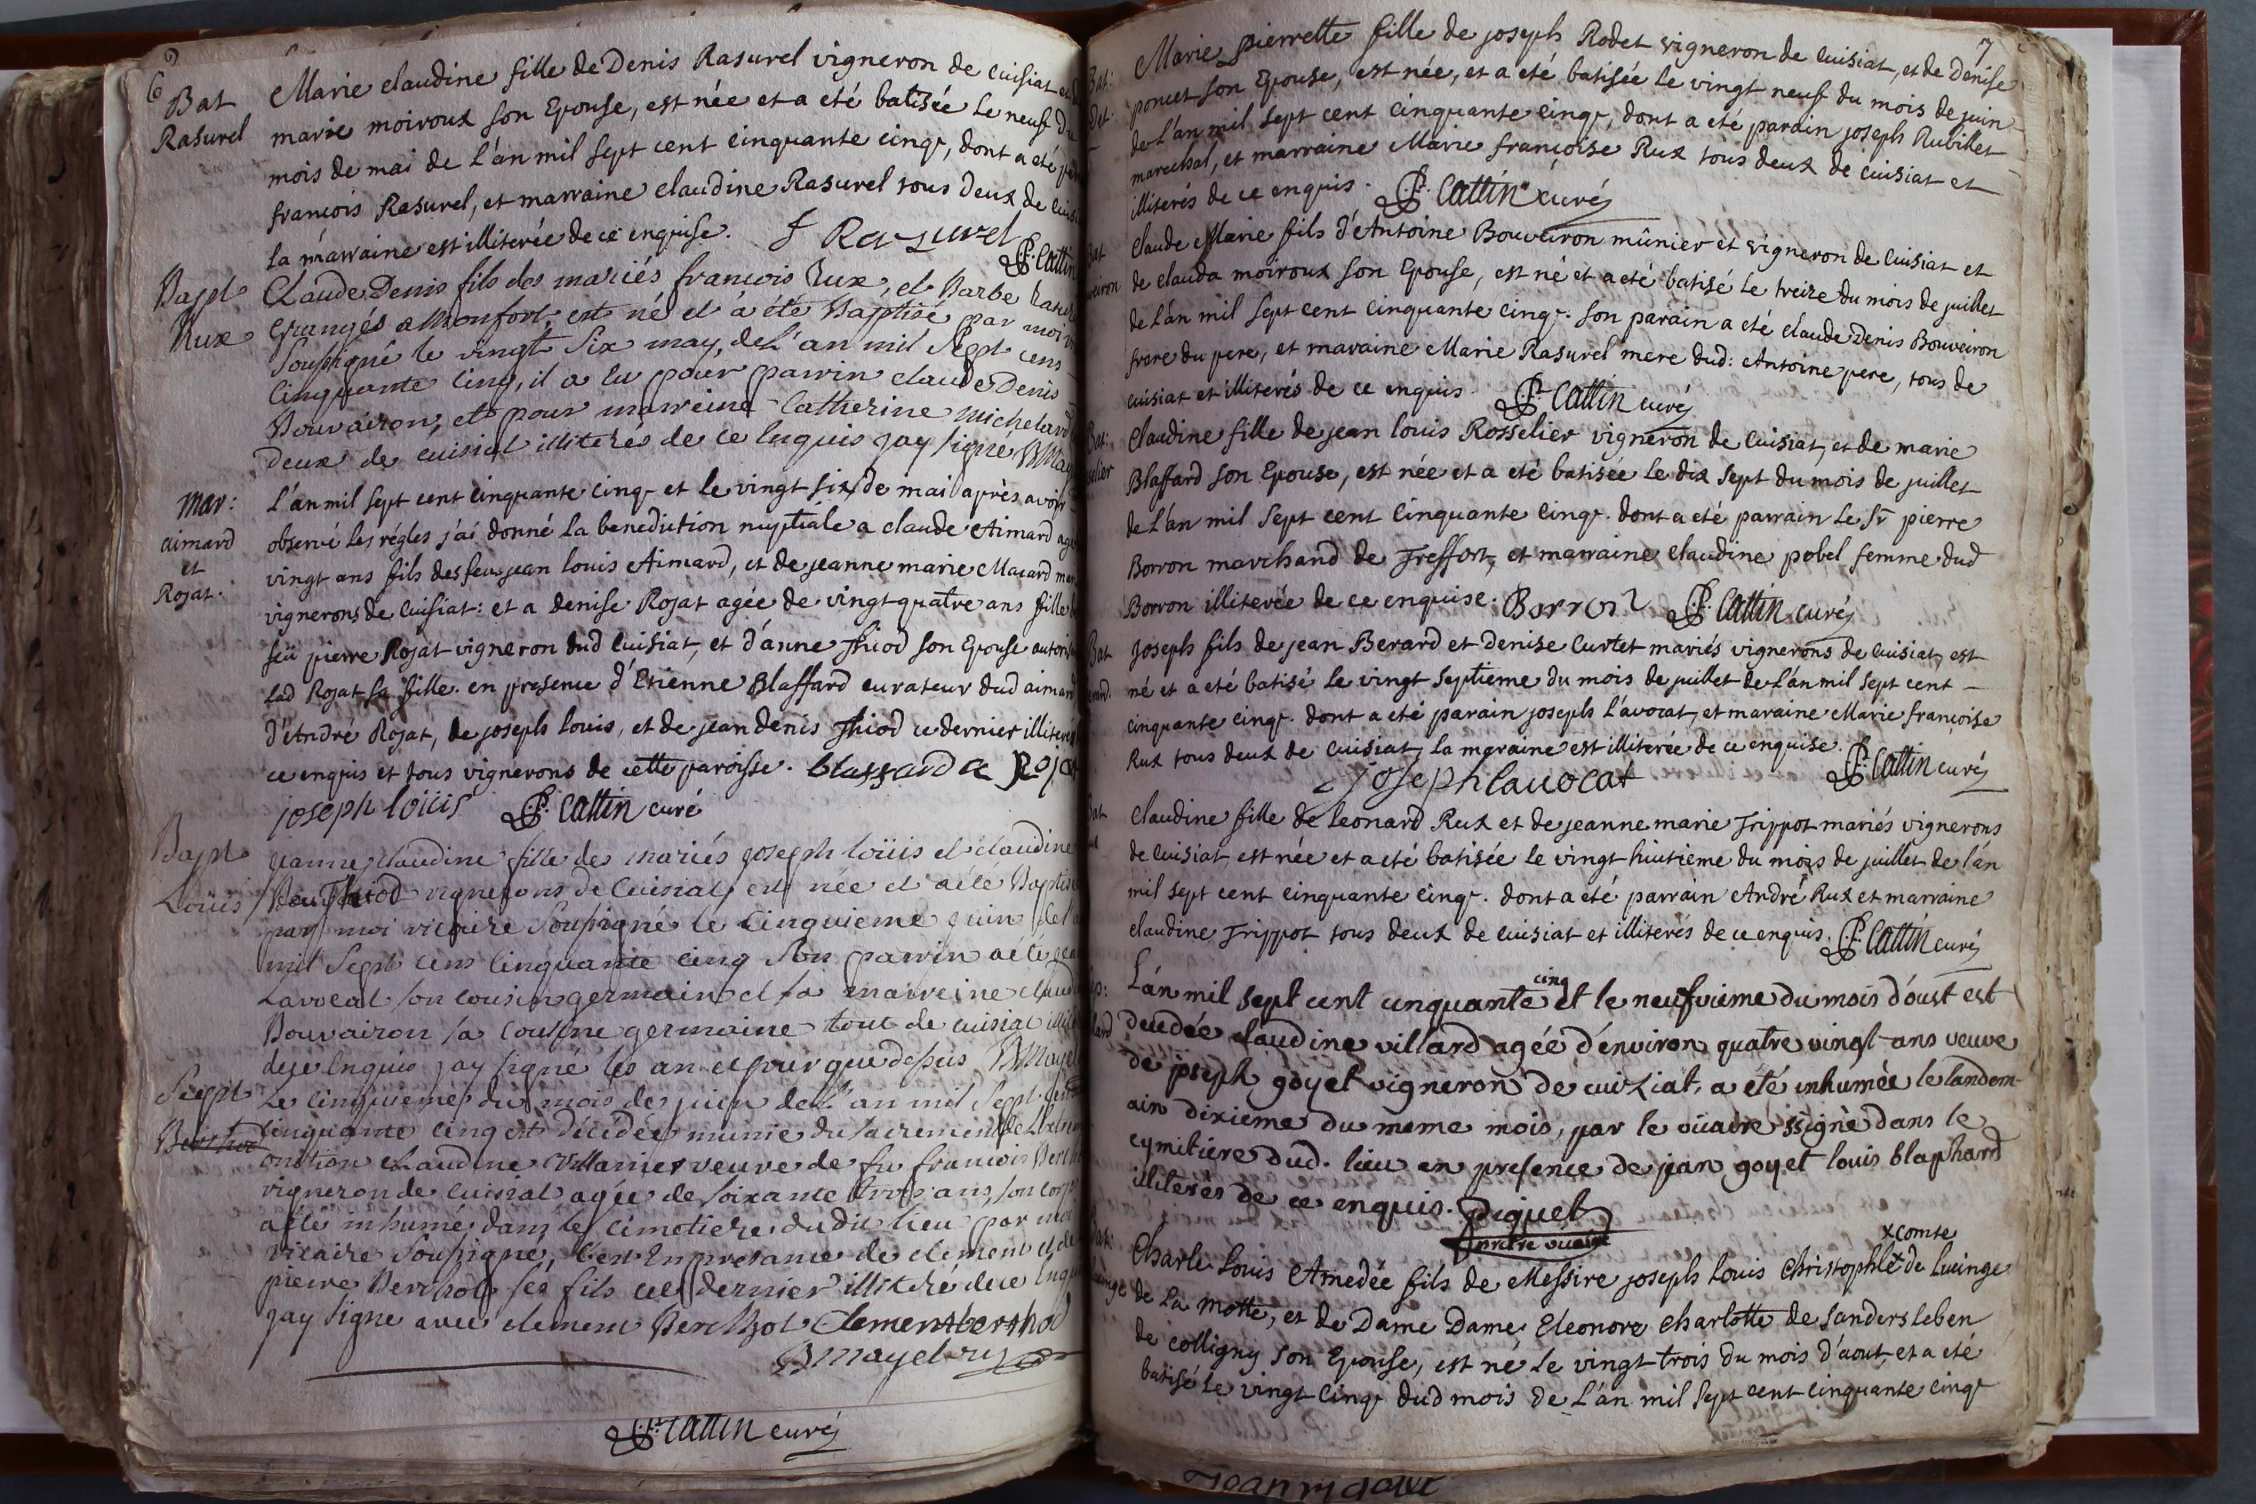 6
Bat
Rasurel
Marie claudine fille de Denis Rasurel vigneron de cuisiat et
marie moiroux son Epouse, est née et a eté batisée le neuf du
mois de mai de L'an mil sept cent cinquante cinq, dont a eté
françois Rasurel, et marraine claudine Rasurel tous deux de
la marraine est illiterée de ce enquise. f Rasurel
P. Cattin
Bapt
Rux
Claude Denis fils des mariés francois Rux, et Barbe
Grangés a Monfort, est né et à été Baptisé par moi
Soussigné le vingt Six may, de L'an mil Sept cens
Cinquante Cinq, il a eu pour parrin claude Denis
Bouvairon, et pour marreine Catherine Michelard
Deux de cuisiat illiterés de ce Enquis jay signé BMay
Mar:
aimard
et
Rojat.
L'an mil sept cent cinquante cinq et le vingt six de mai après avoir
observé les régles j'ai donné la benediction nuptiale a claude Aimard
vingt ans fils des feu jean louis Aimard, et de jeanne marie Macard
vignerons de Cuisiat: et a denise Rojat agée de vingt quatre ans fille
feü pierre Rojat vigneron dud Cuisiat, et d'anne Thiod son Epouse
Lad Rojat sa fille. en presence d'Etienne Blaffard curateur dud aimard
d'André Rojat, de joseph louis, et de jean denis Thiod ce dernier illiteré
ce enquis et tous vignerons de cette paroisse. blaffard a Rojat
joseph loüis P. Cattin curé
Bapt
Loüis
jeanne claudine fille des mariés joseph loüis et claudine
Thiod vignerons de Cuisiat, est née et a été Baptisé
par moi vicaire Soussigné le Cinquieme juin de l'
mil Sept cens Cinquante cinq Son parrin a été
Lavocat son cousin germain et sa marreine
Bouvairon sa cousine germaine tout de cuisiat
de ce Enquis jay signé les an et jour que desus BMayel
Sepul
Berthod
Le cinquieme du mois de juin de L'an mil Sept cent
cinquante cinq est décédée munie du sacrement de
onction claudine Villanier veuve de fu francois
vigneron de cuisiat agée de soixante trois ans, son corps
a été inhumé dans le cimetiere du dit lieu par moi
vicaire Soussigné, en presance de clement et de
pierre Berthod ses fils ce dernier illitré de ce
jay signe avec clement Berthot Clement berthod
BMayel
P. Cattin curé
7
Bat:
Marie pierrette fille de joseph Rodet vigneron de Cuisiat, et de Denise
poncet son Epouse, est née, et a eté batisée le vingt neuf du mois de juin
de L'an mil sept cent cinquante cinq, dont a eté parain joseph Rubillet
marechal, et marraine Marie françoise Rux tous deux de Cuisiat et
illiterés de ce enquis. P. Cattin curé
Claude Marie fils d'Antoine Bouveiron mûnier et vigneron de Cuisiat et
de clauda moiroux son Epouse, est né et a eté batisé le treize du mois de juillet
de L'an mil sept cent cinquante cinq. son parain a eté claude Denis Bouveiron
frere du pere, et maraine Marie Rasurel mere dud: Antoine pere, tous de
cuisiat et illiterés de ce enquis. P. Cattin curé
Bat:
Claudine fille de jean louis Rosselier vigneron de Cuisiat, et de marie
Blaffard son Epouse, est née et a eté batisée le dix sept du mois de juillet
de L'an mil sept cent cinquante cinq. dont a eté parrain Le Sr pierre
Borron marchand de Treffort, et marraine claudine pobel femme dud
Borron illiterée de ce enquise. Borron P. Cattin curé
Bat
joseph fils de jean Berard et denise Curtet mariés vignerons de Cuisiat, est
né et a eté batisé le vingt septieme du mois de juillet de L'an mil sept cent
cinquante cinq. dont a eté parain joseph L'avocat, et maraine Marie françoise
Rux tous deux de Cuisiat, la maraine est illiterée de ce enquise.
joseph lavocat P. Cattin curé
Bat
Claudine fille de Leonard Rux et de jeanne marie Trippot mariés vignerons
de cuisiat, est née et a eté batisée le vingt huitieme du mois de juillet de L'an
mil sept cent cinquante cinq. dont a eté parrain André Rux et marraine
claudine Trippot tous deux de Cuisiat et illiterés de ce enquis. P. Cattin curé
L'an mil sept cent cinquante cinq et le neufvieme du mois d'oust est
decedée claudine villard agéé d'énviron quatre vingt ans veuve
de joseph goyet vigneron de cuiziat, a été inhumée le landem-
ain dixieme du meme mois, par le vicaire ssigné dans le
cymitiere dud. lieu en presence de jean goyet louis blaphard
illiterés de ce enquis. Piquet
prêtre vicaire
Bat:
Charle Louis Amedée fils de Messire joseph Louis Christophle x de Lucinge
x comte
de La Motte, et de Dame Dame Eleonore Charlotte de Sandersleben
de colligny son Epouse, est né le vingt trois du mois d'aout, et a eté
batisé le vingt cinq dud mois de L'an mil sept cent cinquante cinq